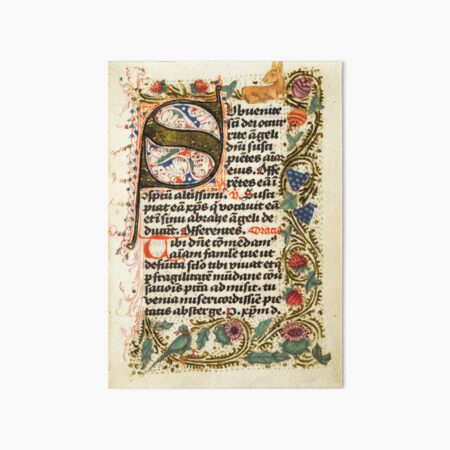 Subuenite
sā dei occur
rite āgeli
dn̄i susci
piētes aīaʒ
eius. Offe
rētes eā ī
ɔspctū altissimi. V. Susci
piat eā xp̄s q̇ vocauit eā
et ī sinū abrahe āgeli de
ducāt. Offerentes. Oratio
Tibi dn̄e cōmēdam⁹
aīam famule tue ut
defūcta sclo tibi viuat et q̄
p fragilitatē mūdane cōu
sationis pctā admisit. tu
venia misericordissīe pie
tatis absterge. P. xp̄m d.